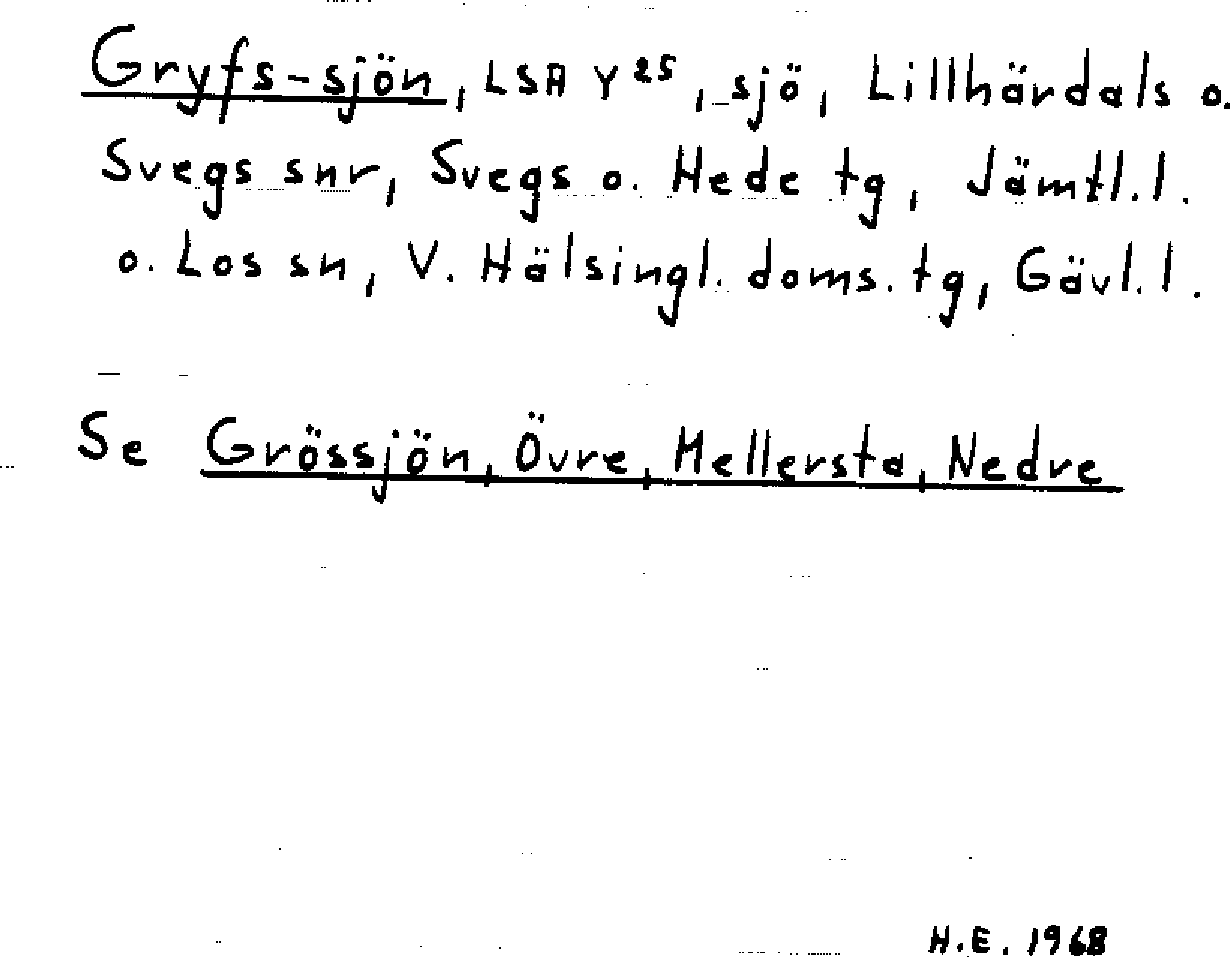 Gryfs-sjön, LSA Y 25, sjö, Lillhärdals o.
Svegs snr, Svegs o. Hede tg, Jämtl. l.
o. Los sn, V. Hälsingl. doms. tg, Gävl. l.
Se Grössjön, Övre, Mellersta, Nedre
H.E. 1968